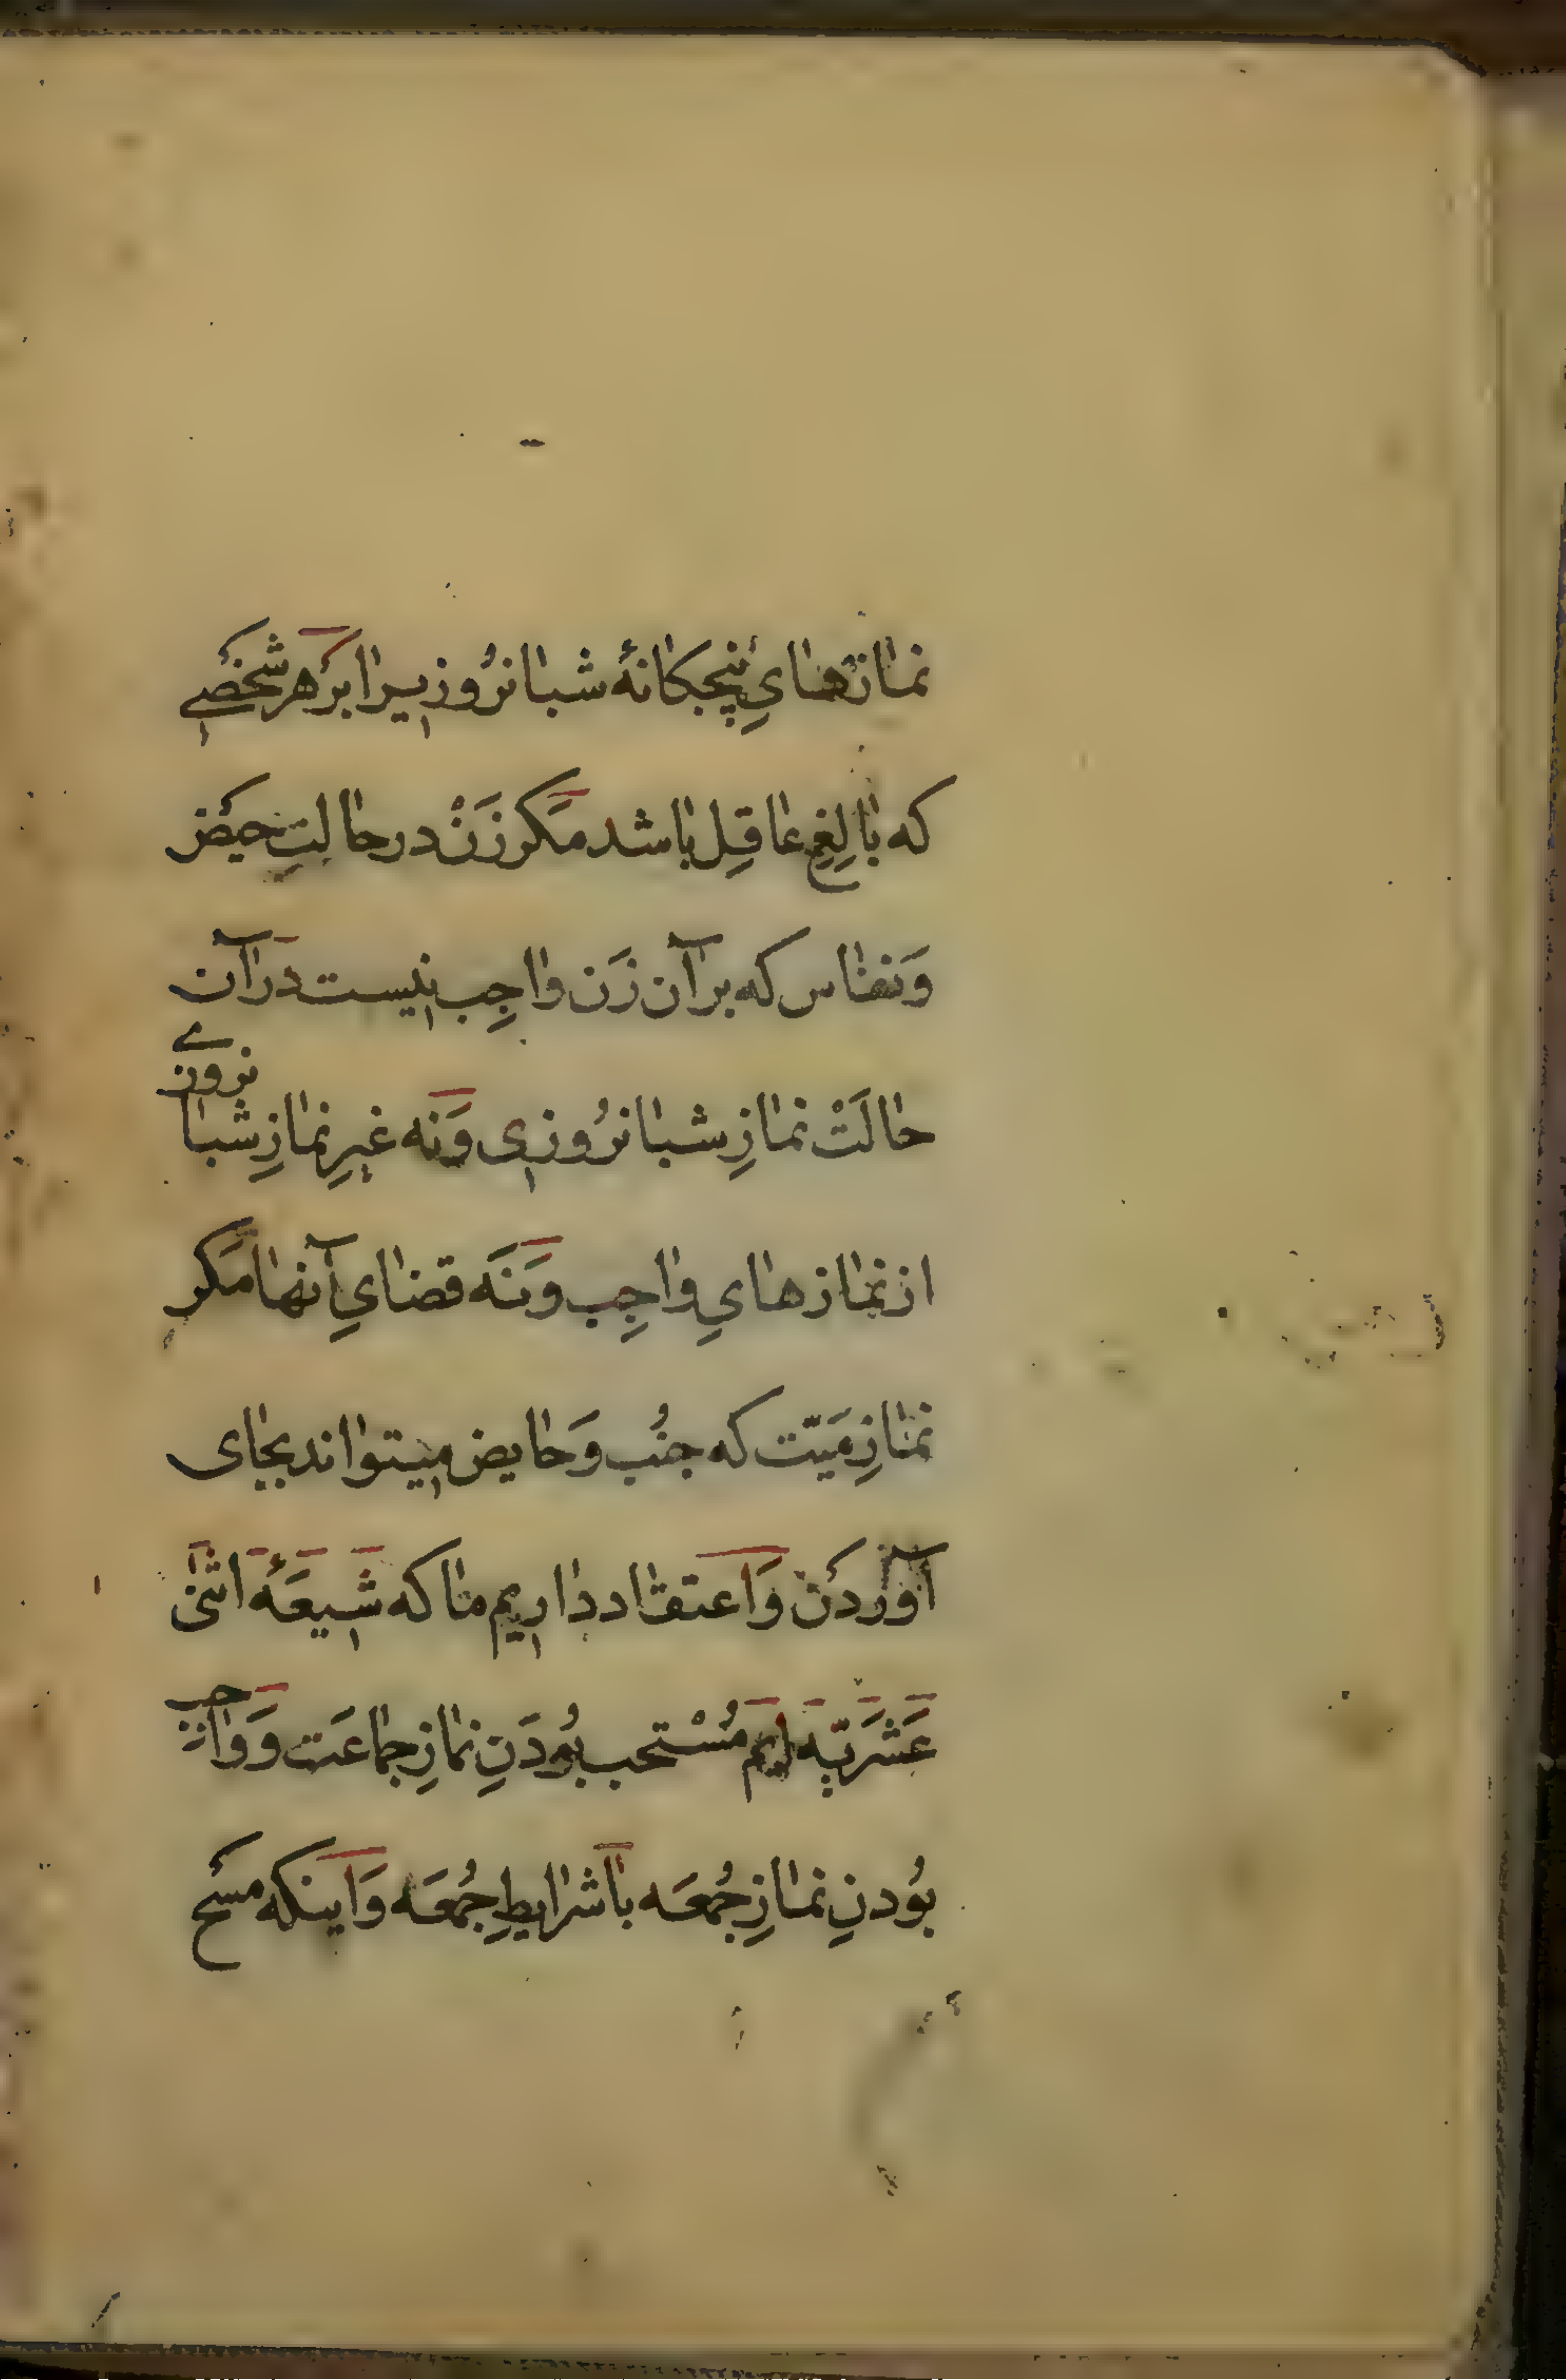 نمازهایِ پنجکانهٔ شبانرُوزیرا بَر هر شخصی
که بالِغِ عاقِل باشد مَکر زَنْ در حالتِ حیض
وَنفاس که بر آن زَن واجِب نیست دَر آن
حالَتْ نمازِ شبانرُوزی وَنَه غیرِ نمازِ شبانروزی
از نمازهایِ واجِب وَنَه قضایِ آنها مَکر
نمازِ مَیّت که جنُب وَحایض میتواند بجای
آوَردَن وَاعتقاد داریم ما که شیعَهٔ اثنی
عَشَریّه ایم مُسْتحب بُودَنِ نمازِ جماعَت وَوَاجب
بُودنِ نمازِ جُمعَه با شرایطِ جُمعَه وَاینکه مسح